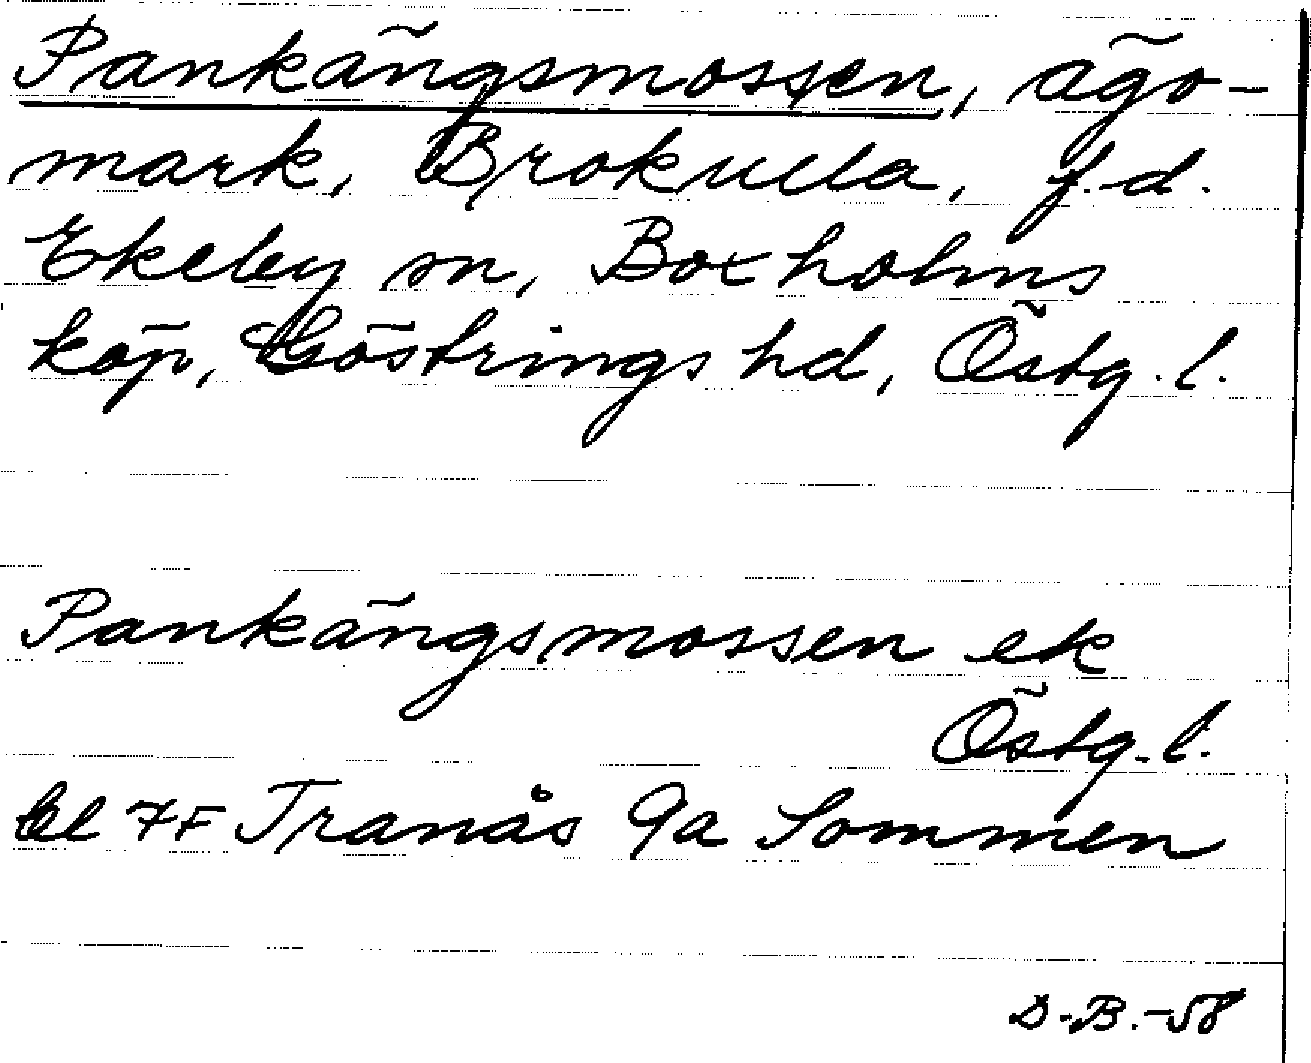 Pankängsmossen, ägo-
mark, Brokulla, f.d.
Ekeby sn, Boxholms
köp, Göstrings hd, Östg.l.
Pankängsmossen ek
Östg.l.
bl 7F Tranås 9a Sommen
D.B.-58